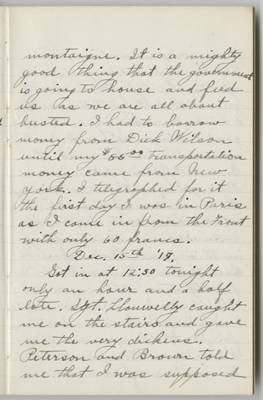 montaigne. It is a mighty
good thing that the government
is going to house and feed
us as we are all about
busted. I had to borrow
money from Dick Wilson
until my $55.00 transportation
money came from New
York. I telegraphed for it
the first day I was in Paris
as I came in from the front
with only 60 francs.
Dec. 15th '18.
Got in at 12:30 tonight
only an hour and a half
late. Sgt. caught
me on the stairs and gave
me the very dickens.
Peterson and Brown told
me that I was supposed